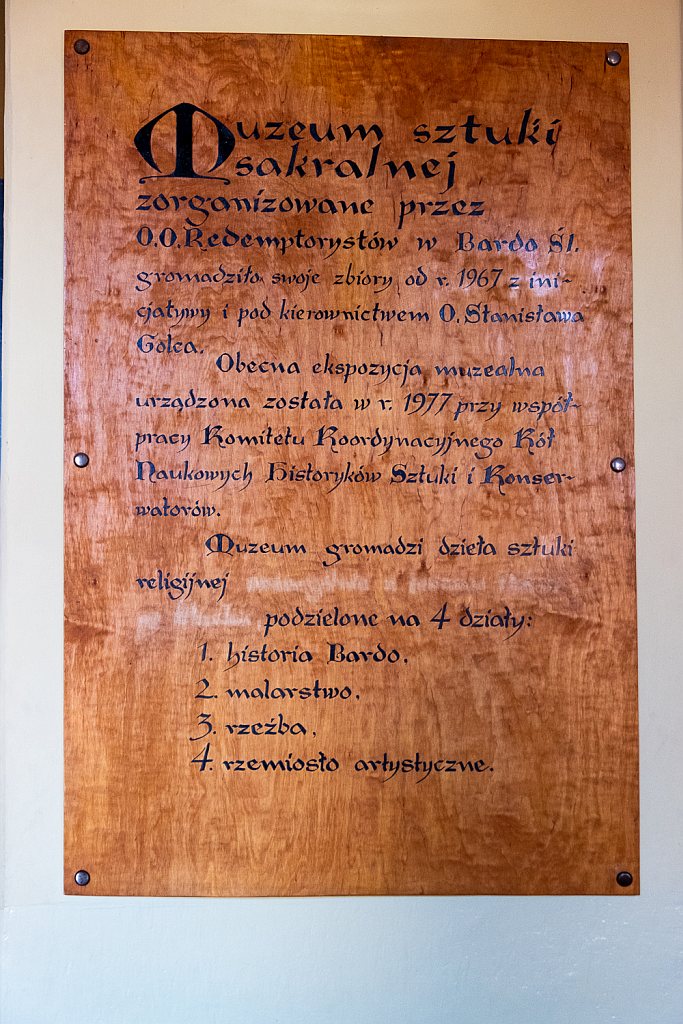 Muzeum sztuki
sakralnej
zorganizowane przez
O.O. Redemptorystów w Bardo Śl.
gromadziło swoje zbiory od r. 1967 z ini-
cjatywy i pod kierownictwem O. Stanisława
Golca.
Obecna ekspozycja muzealna
urządzona została w r. 1977 przy współ-
pracy Komitetu Koordynacyjnego Kół
Naukowych Historyków Sztuki i Konser-
watorów.
Muzeum gromadzi dzieła sztuki
religijnej
podzielone na 4 działy:
1. historia Bardo,
2. malarstwo,
3. rzeźba,
4. rzemiosło artystyczne.